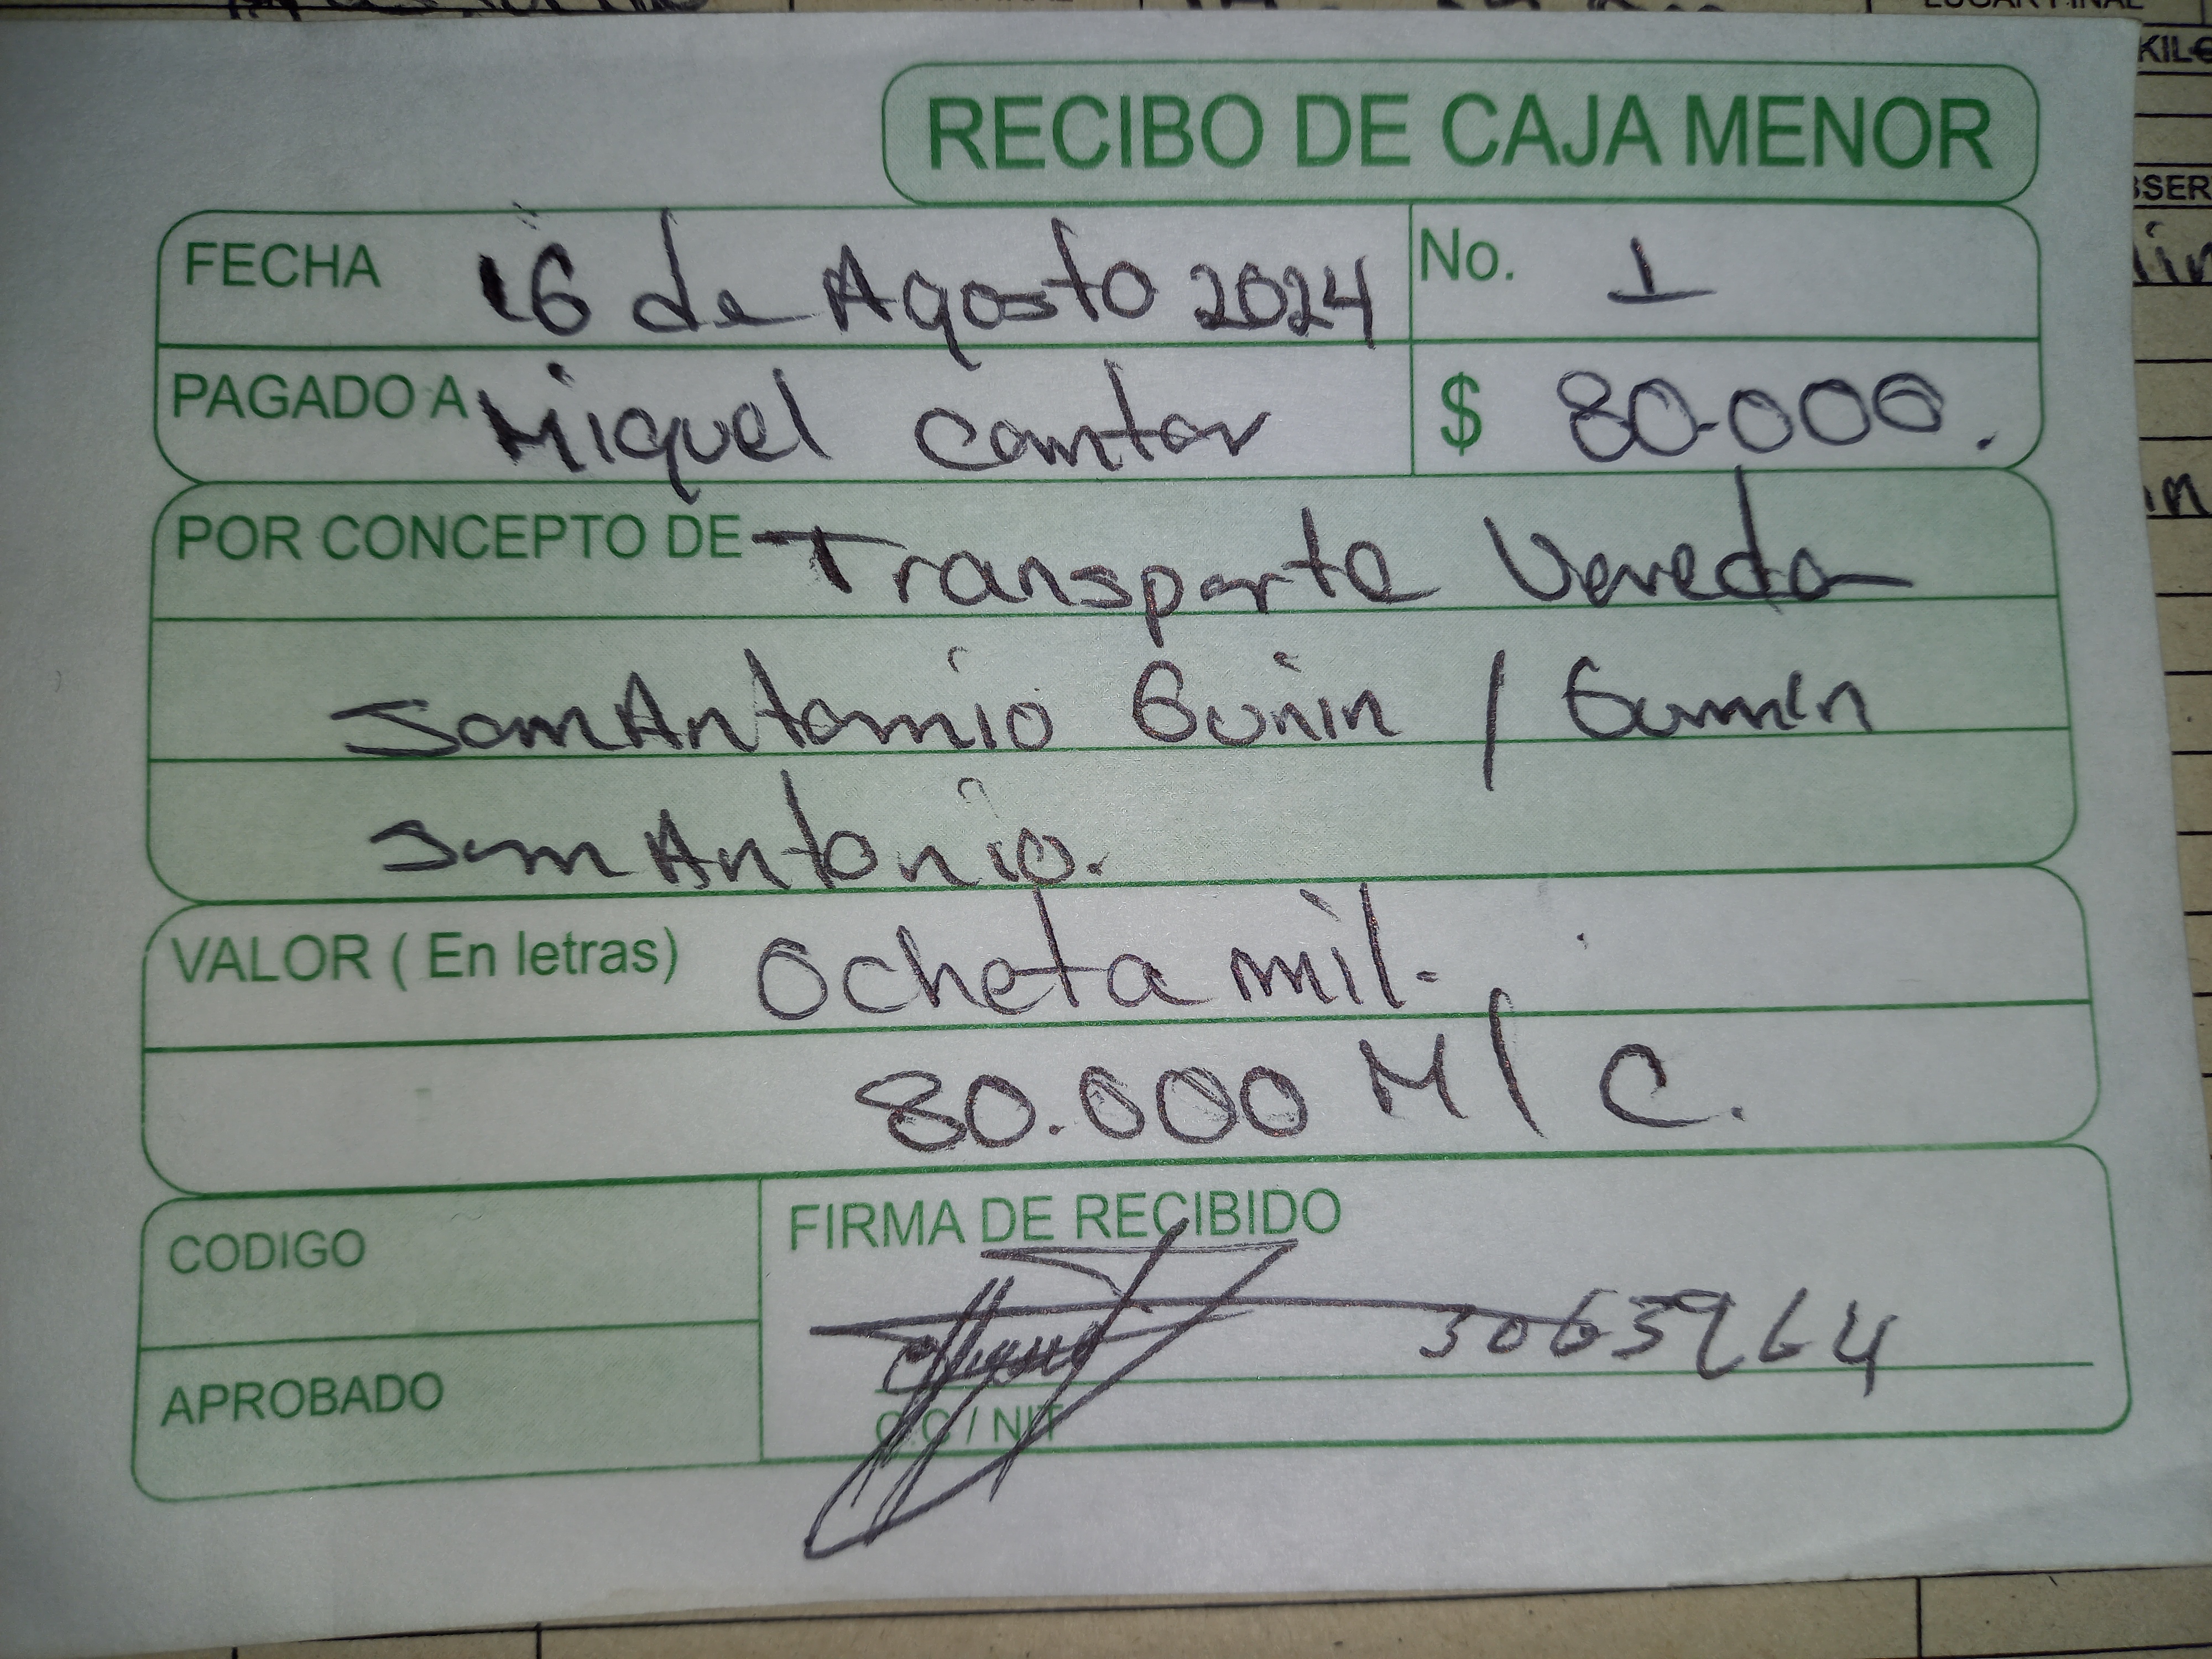 RECIBO DE CAJA MENOR
FECHA 16 de Agosto 2024 No. 1
PAGADO A Miguel Cantor $ 80.000.
POR CONCEPTO DE Transporte Vereda
San Antonio Gunin / Gunin
San Antonio.
VALOR ( En letras) Ocheta mil.
80.000 M/C.
CODIGO
FIRMA DE RECIBIDO
3063964
APROBADO
C.C / NIT